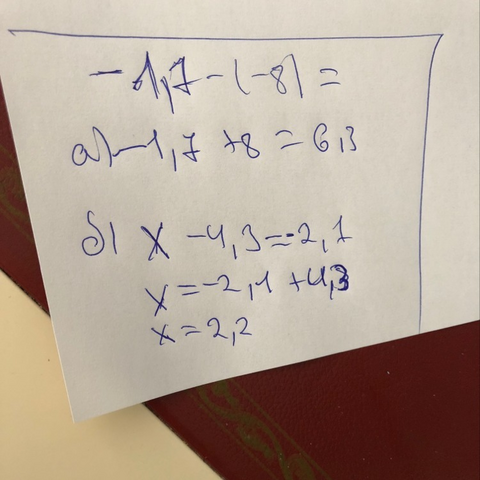 -1,7-(-8)=
а) -1,7+8=6,3
б) x-4,3=-2,1
x=-2,1+4,3
x=2,2